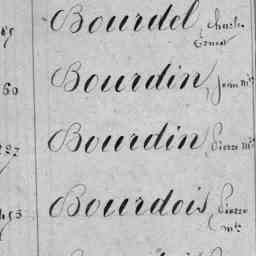 Bourdel, Charles
Ernest
60 Bourdin, Jean Mie
227 Bourdin, Pierre Mie
Bourdois, Pierre
Mie